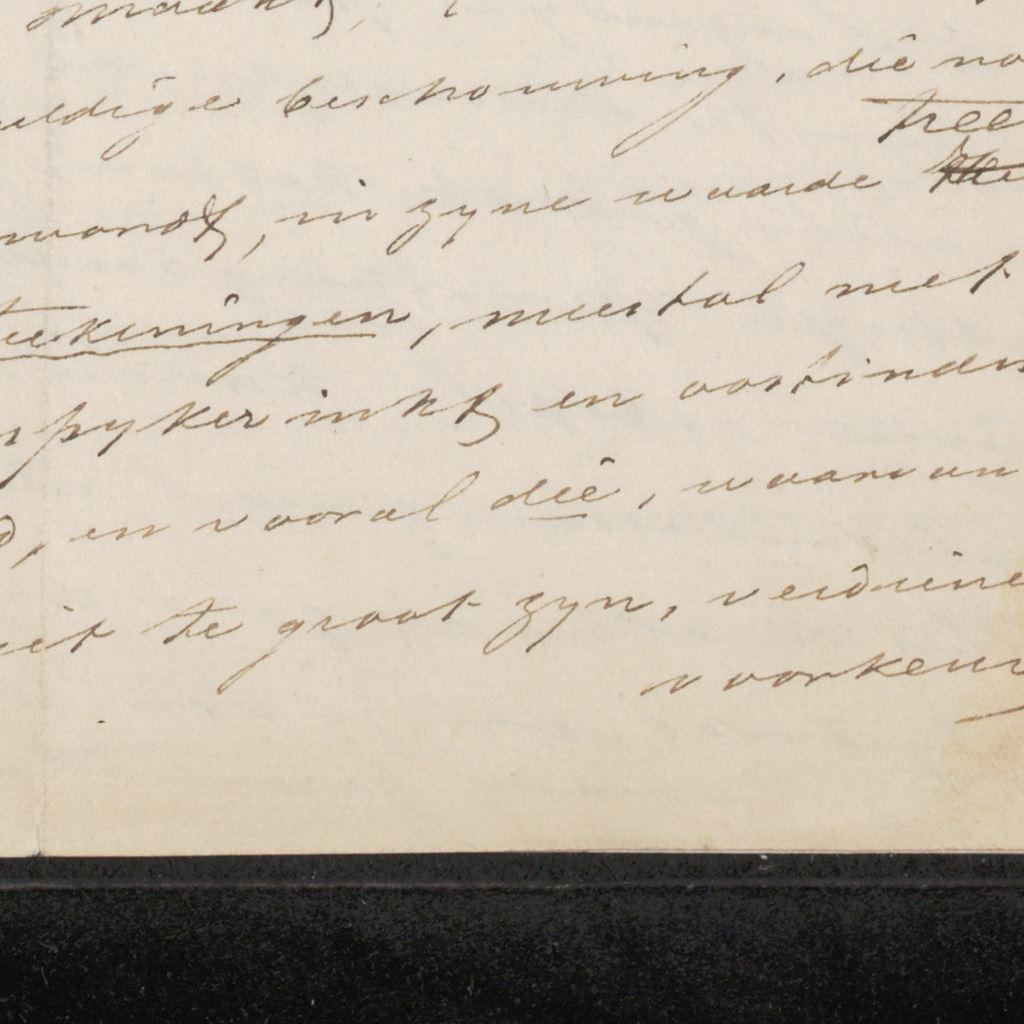 uldige beschouwing, die no
tree
in zyne waarde
teekeningen, meestal met
spyker inkt en oostindis
en vooral die, waarvan
niet te groot zyn, verdiene
voorkeur